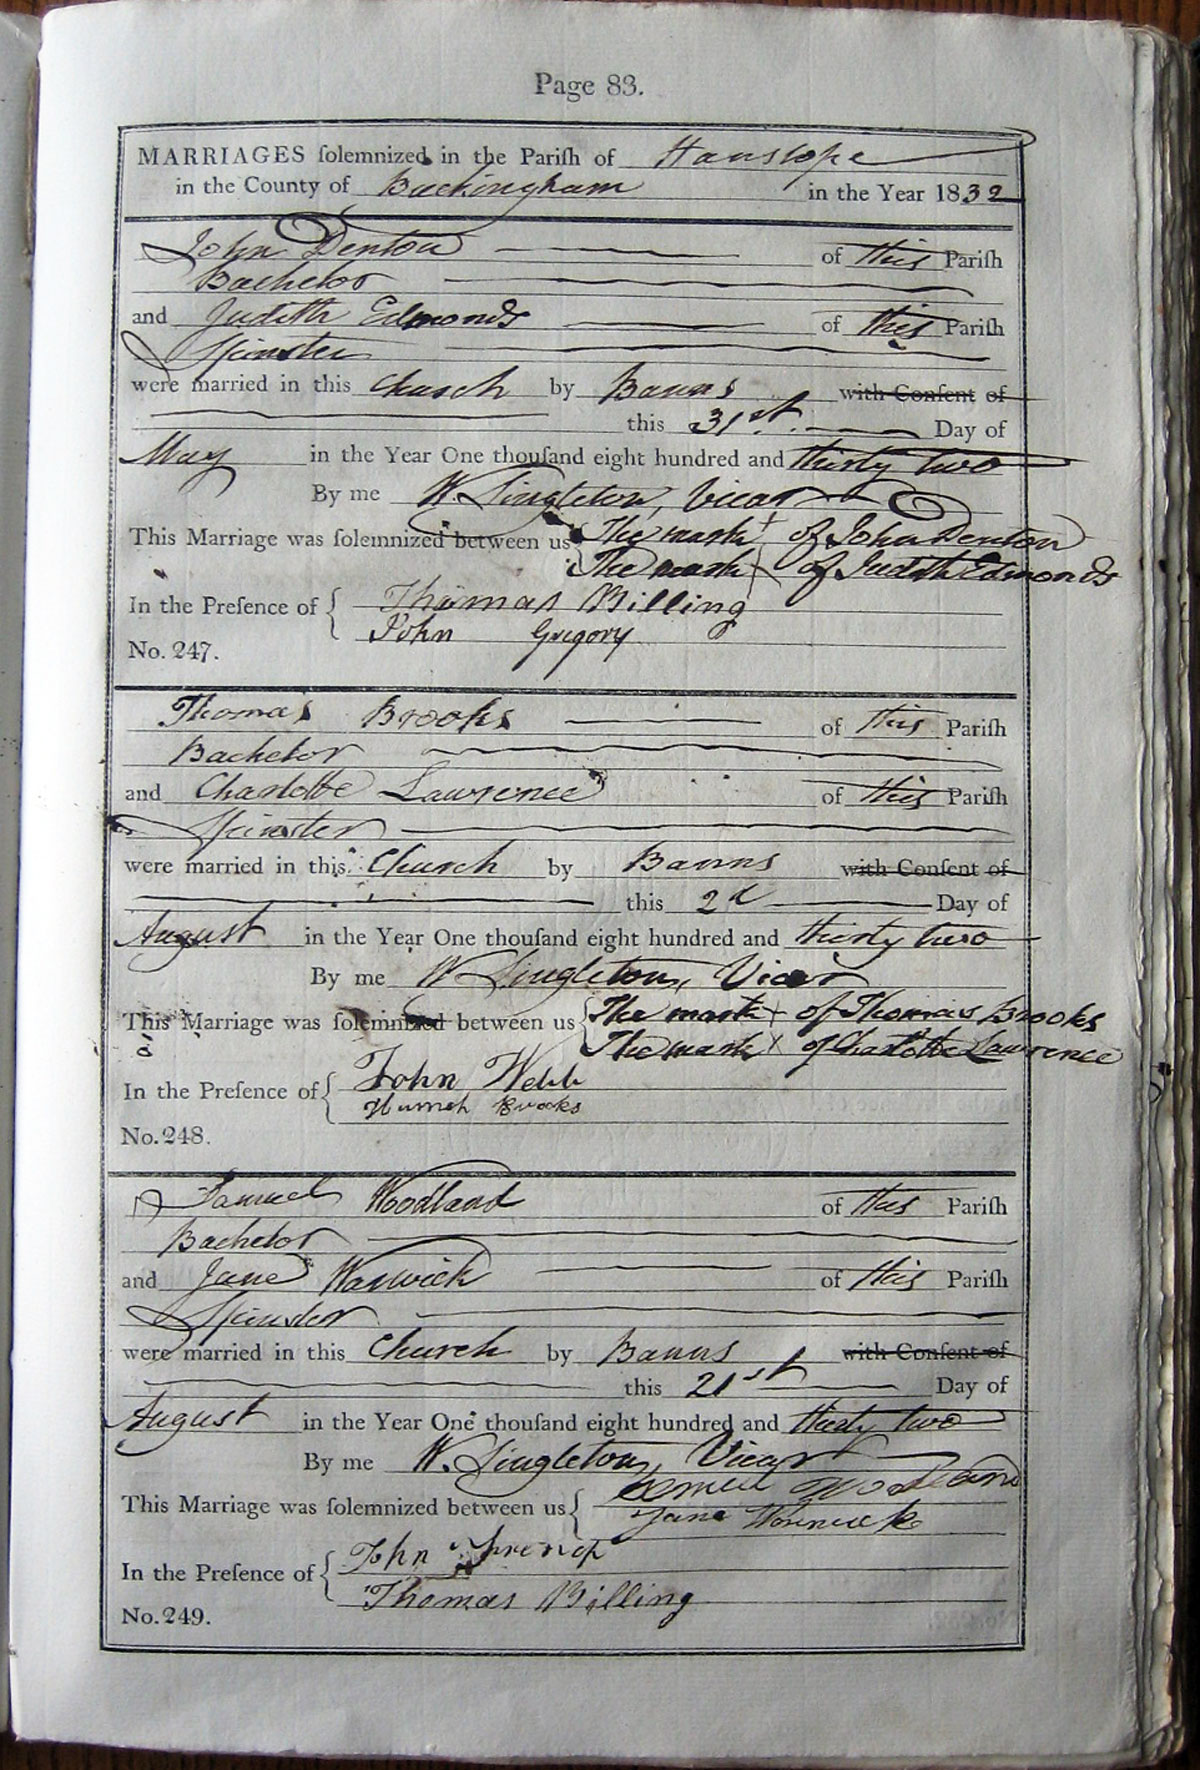 Page 83.
MARRIAGES ſolemnized in the Pariſh of Hanslope
in the County of Buckingham in the Year 1832
John Denton of this Pariſh
Bachelor
and Judith Edmonds of this Pariſh
Spinster
were married in this Church by Banns with Conſent of
this 31st. Day of
May in the Year One thouſand eight hundred and thirty two
By me W. Singleton, Vicar
This Marriage was ſolemnized between us { The mark + of John Denton
The mark + of Judith Edmonds
In the Preſence of { Thomas Billing
John Gregory
No. 247.
Thomas Brooks of this Pariſh
Bachelor
and Charlotte Lawrence of this Pariſh
Spinster
were married in this Church by Banns with Conſent of
this 2d Day of
August in the Year One thouſand eight hundred and thirty two
By me W Singleton, Vicar
This Marriage was ſolemnized between us { The mark + of Thomas Brooks
The mark X of Charlotte Lawrence
In the Preſence of { John Webb
Brooks
No. 248.
Samuel Woodland of this Pariſh
Bachelor
and Jane Warwick of this Pariſh
Spinster
were married in this Church by Banns with Conſent of
this 21st Day of
August in the Year One thouſand eight hundred and thirty two
By me W. Singleton, Vicar
This Marriage was ſolemnized between us { Woodland
Jane
In the Preſence of { John
Thomas Billing
No. 249.